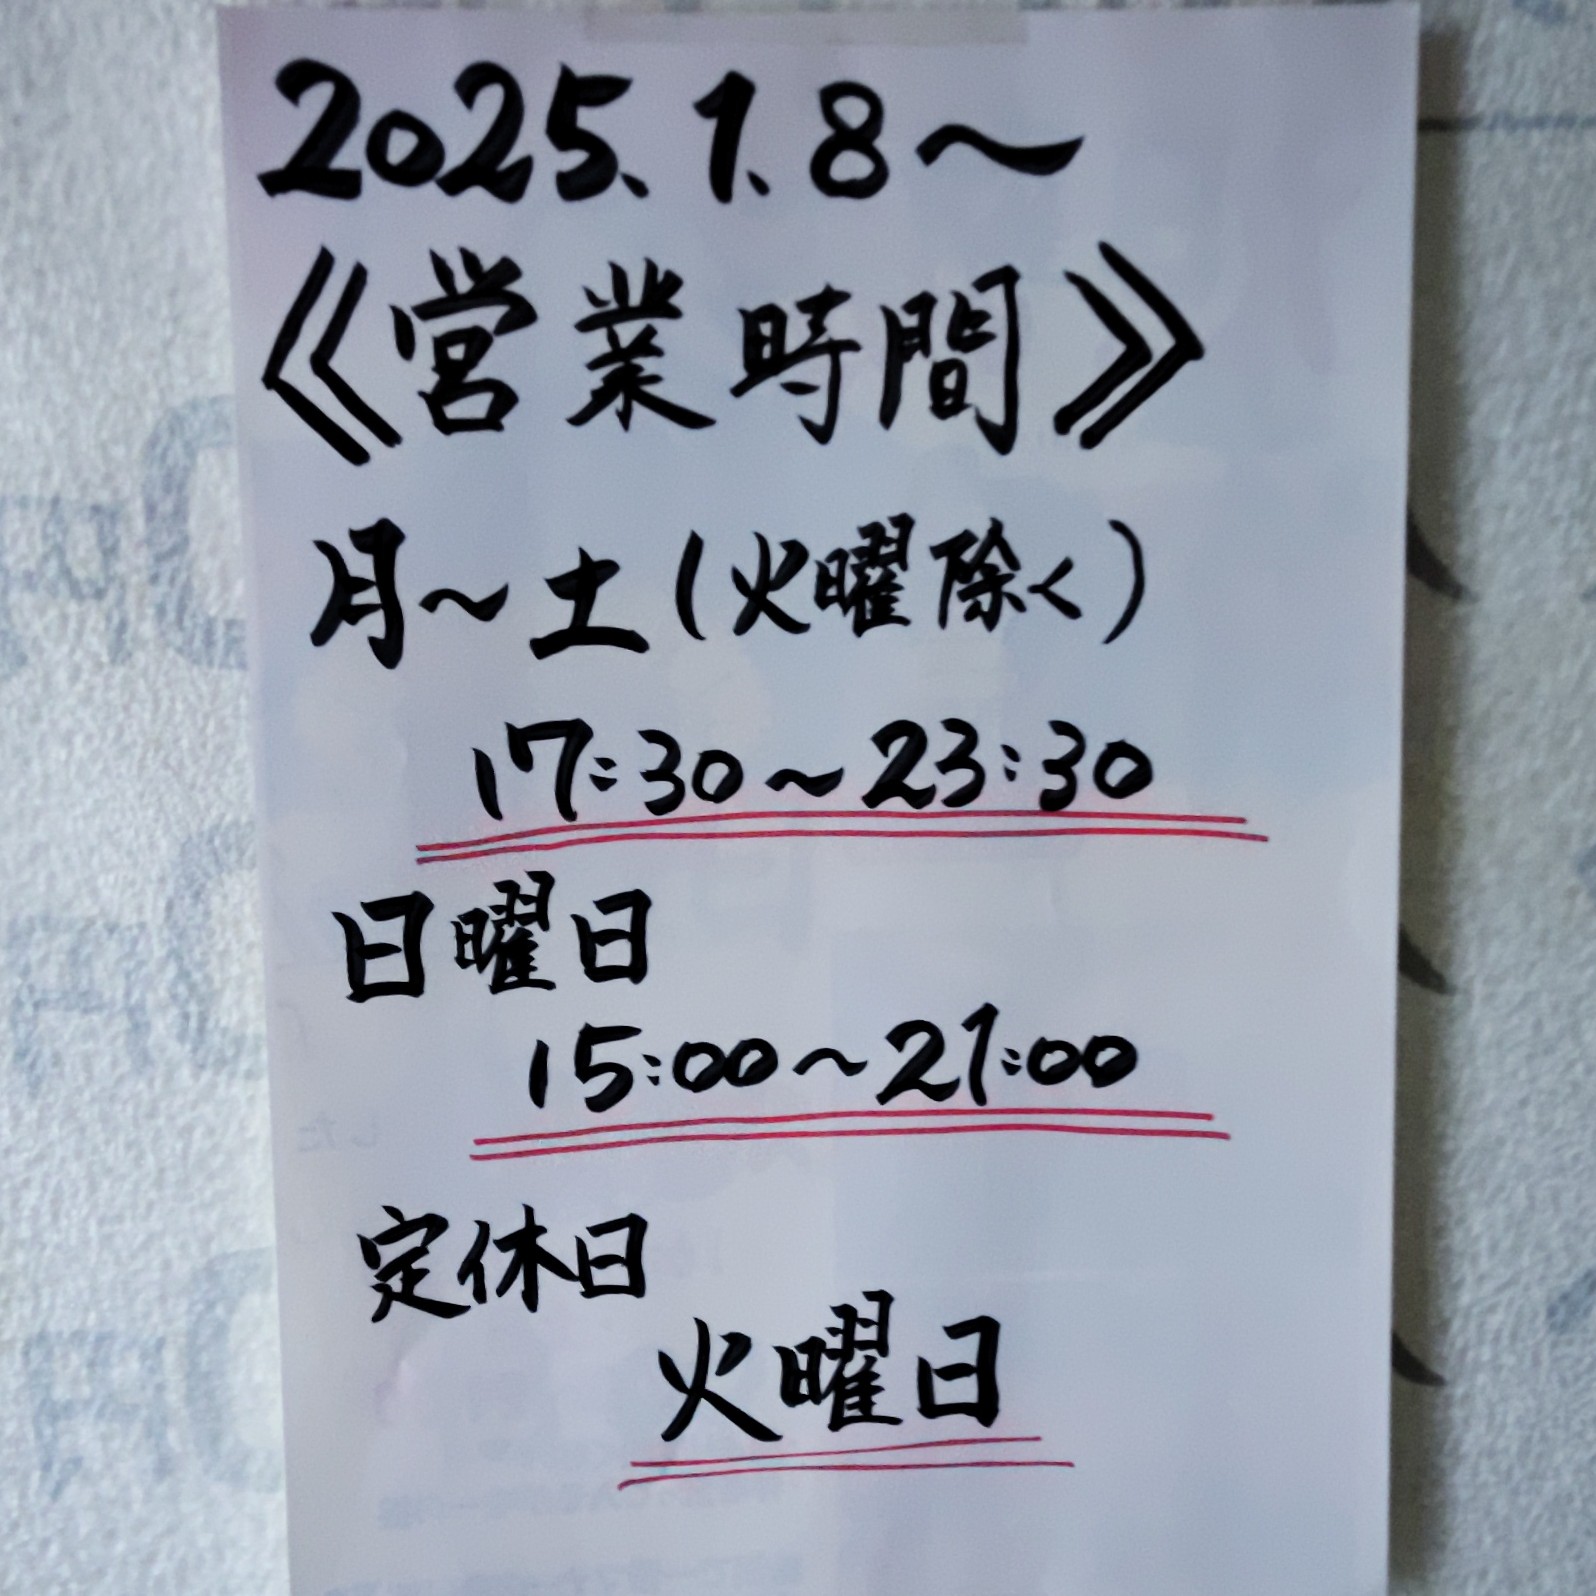 2025.1.8〜
《営業時間》
月〜土(火曜除く)
17:30〜23:30
日曜日
15:00〜21:00
定休日
火曜日